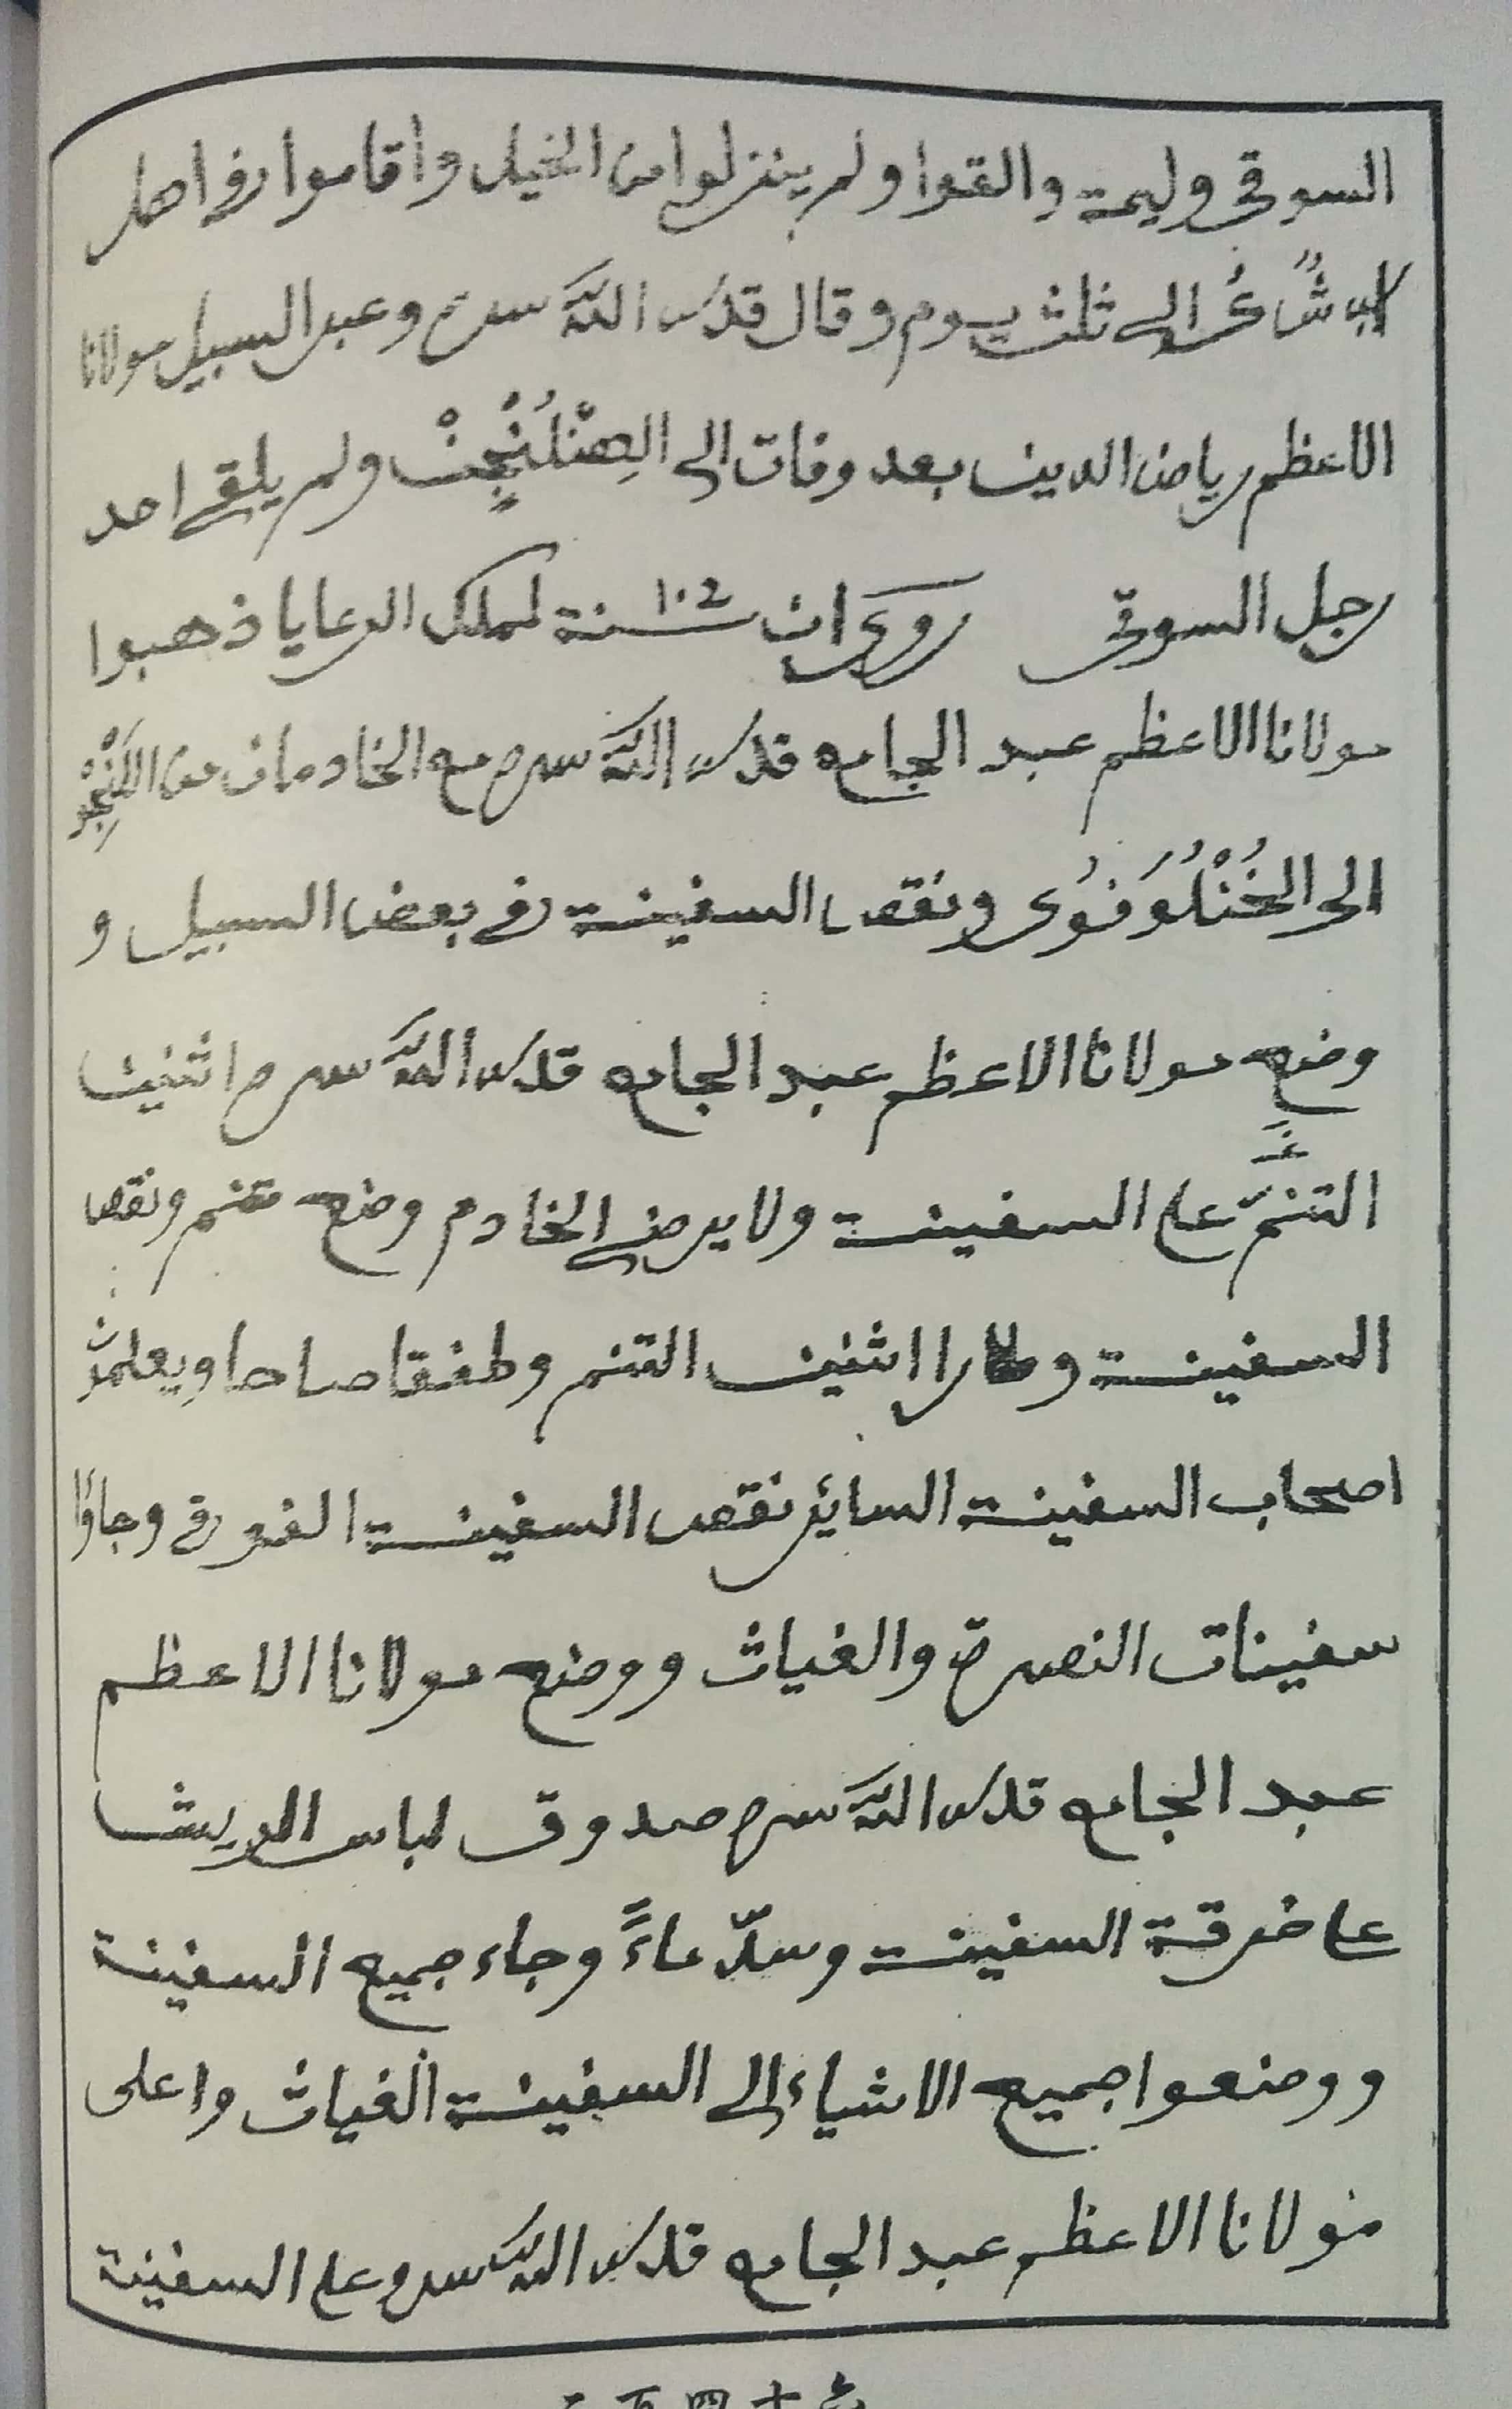 السوقي وليمة والقوا ولم ينزلوا من الخيل واقاموا في اهل
الى ثلث يوم وقال قدس الله سره وعبر السبيل مولانا
الاعظم رياض الدين بعد وفات الى الصِنْلُنْجِنْ ولم يلقى احد
رجل السوقي روى ان سنة لملك الرعايا ذهبوا
مولانا الاعظم عبد الجامع قدس الله سره مع الخادمان من
الى الخُنْلُوَفُوى ونقص السفينة في بعض السبيل و
وضع مولانا الاعظم عبد الجامع قدس الله سره اثنين
التنمّ على السفينة ولا يرضى الخادم وضع متنم ونقص
السفينة وطارا اثنين التنم وطفقا صاحا ويعلم
اصحاب السفينة السائر نقص السفينة الفورقي وجاؤا
سفينات النصرة والغياث ووضع مولانا الاعظم
عبد الجامع قدس الله سره صدوق لباس الريشا
على خرقة السفينة وسدّ ماءً وجاء جميع السفينة
ووضعوا جميع الاشياء الى السفينة الغياث واعلى
مولانا الاعظم عبد الجامع قدس الله سره على السفينة